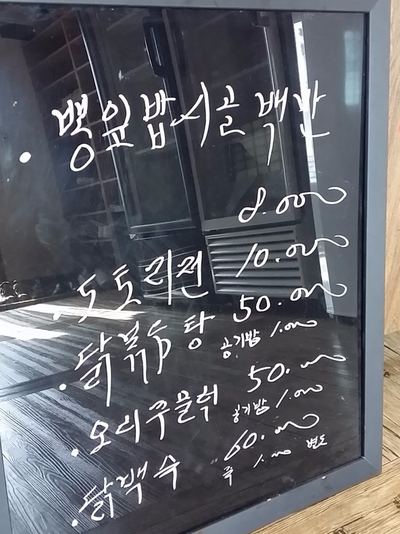 · 뽕잎밥 시골 백반
8.000
· 도토리전 10.000
· 닭볶음탕 50.000
공기밥 1.000
· 오리주물럭 50.000
공기밥 1.000
· 닭백숙 60.000
죽 1.000 별도